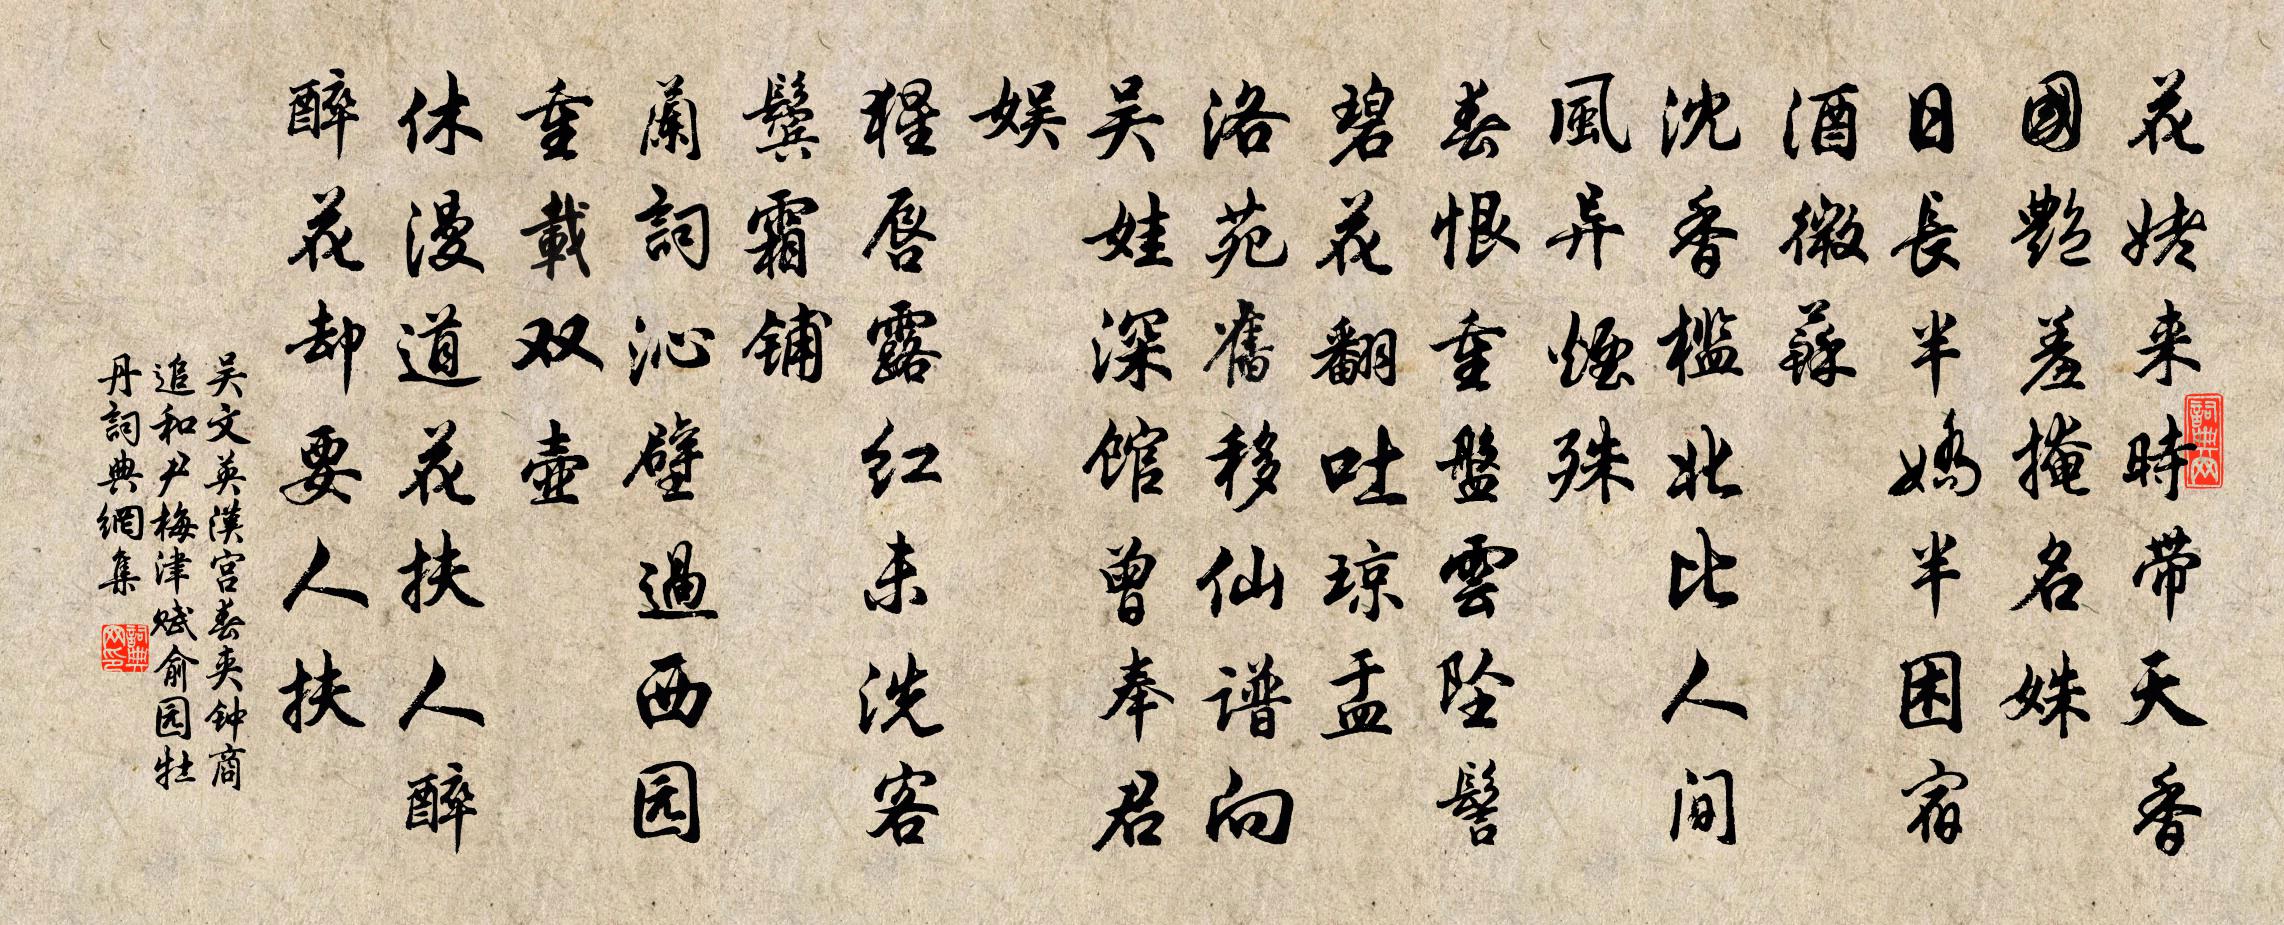 花姥来時带天香
國艷羞掩名姝
日長半嬌半困宿
酒微蘇
沈香槛北比人间
風异煙殊
春恨重盤雲坠髻
碧花翻吐琼盂
洛苑舊移仙谱向
吴娃深馆曾奉君
娱
猩唇露红未洗客
鬓霜铺
蘭詞沁壁過西园
重載双壶
休漫道花扶人醉
醉花却要人扶
吴文英漢宫春夹钟商
追和尹梅津赋俞园牡
丹詞典網集
詞典网
詞典网印